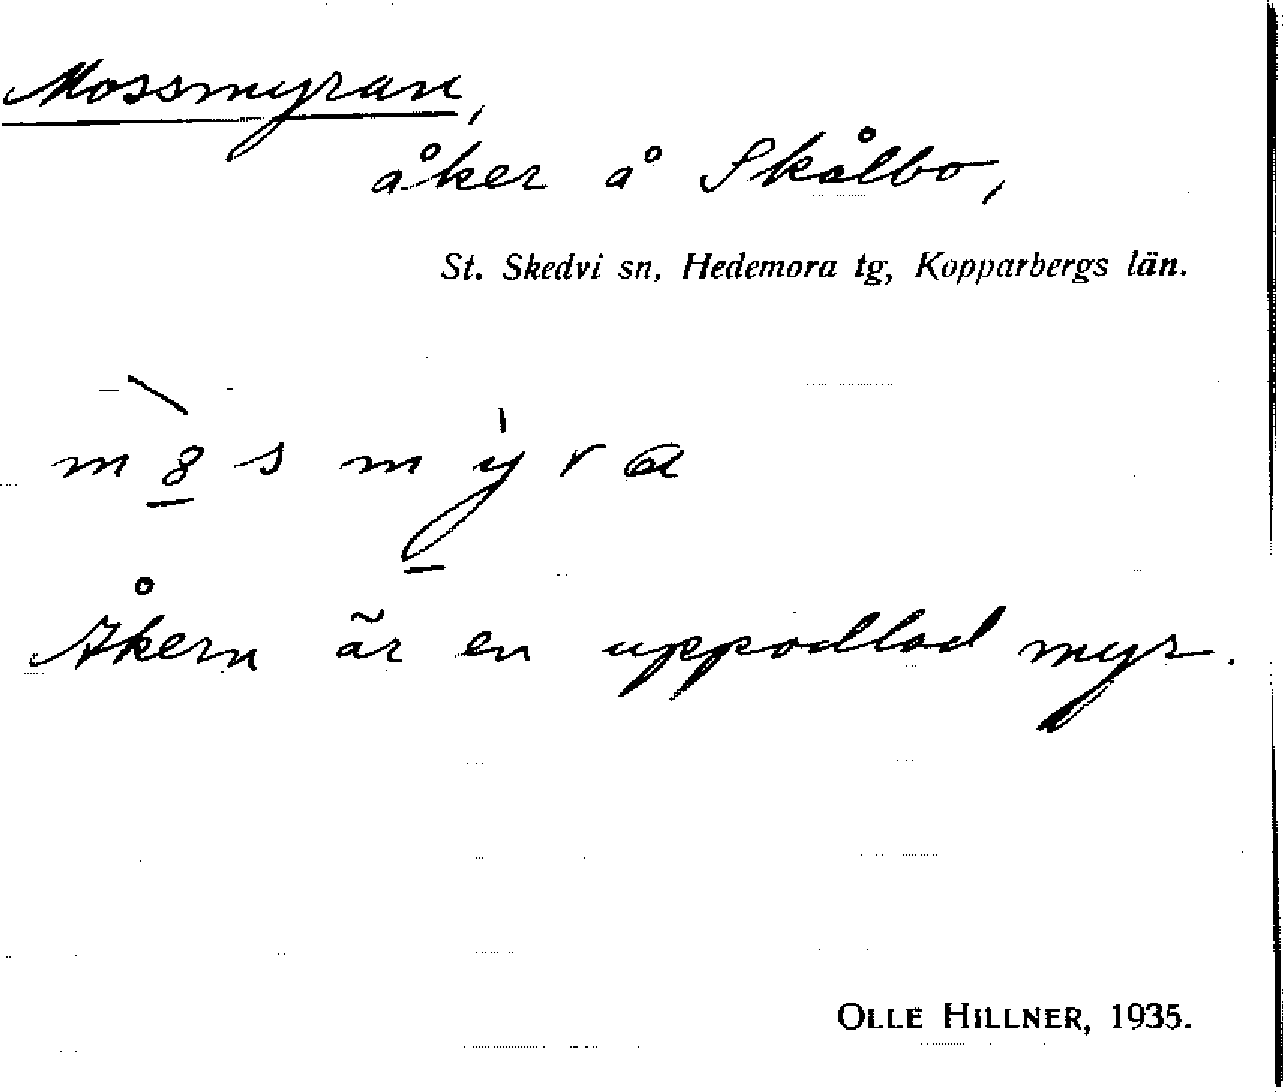 Mossmyran,
åker å Skålbo,
St. Skedvi sn, Hedemora tg, Kopparbergs län.
m8smyra
Åkern är en uppodlad myr.
OLLE HILLNER, 1935.